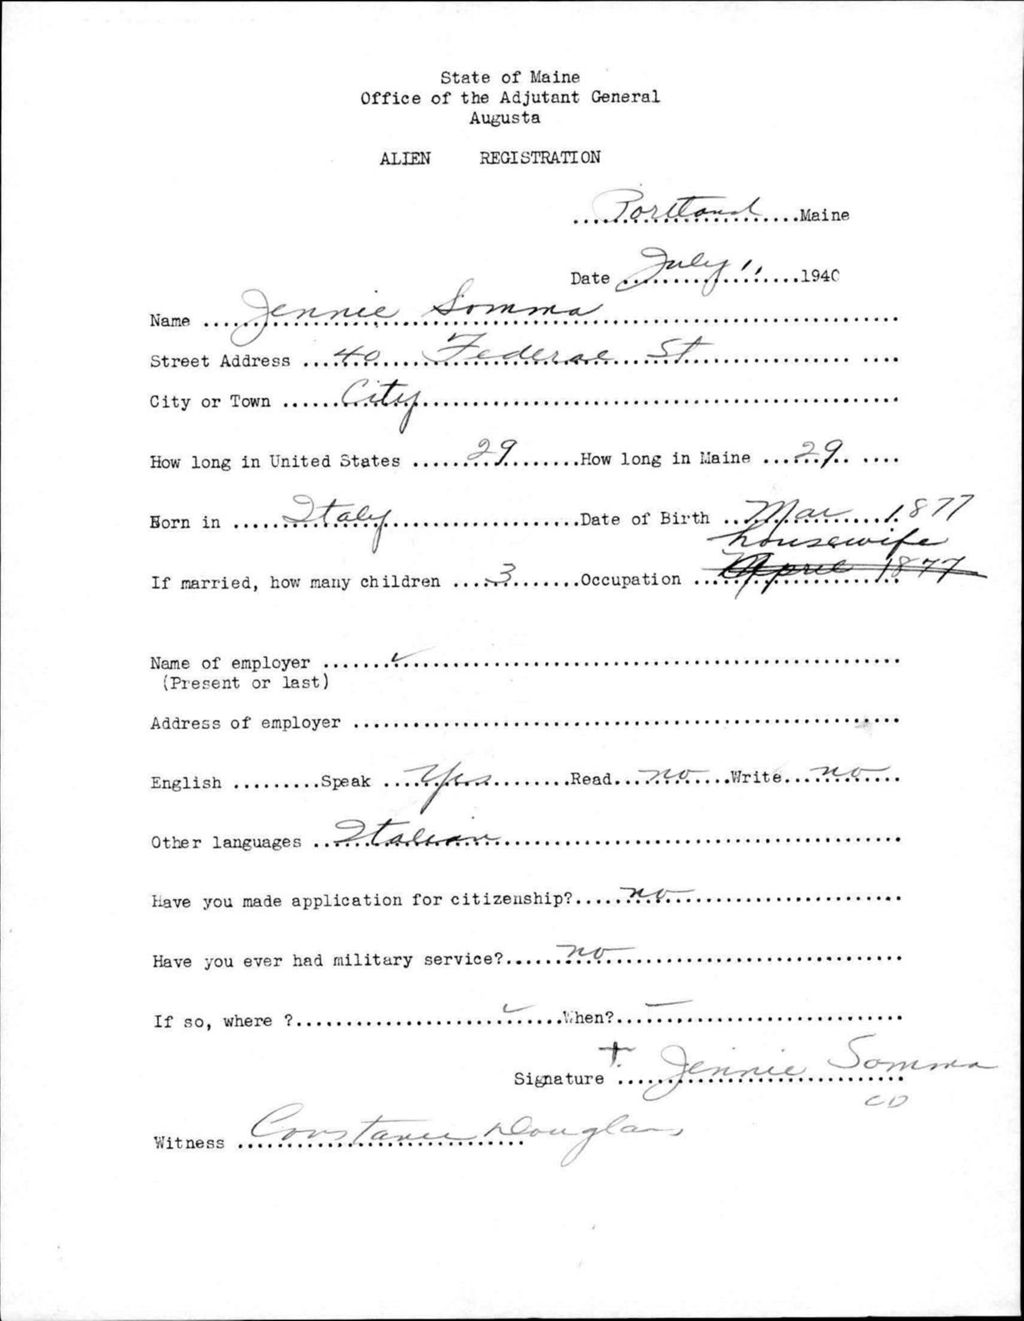 State of Maine
Office of the Adjutant General
Augusta
ALIEN REGISTRATION
Portland Maine
Date July 11 1940
Name Jennie Somma
Street Address 40 Federal St
City or Town City
How long in United States 29 How long in Maine 29
Born in Italy Date of Birth Mar 1877
housewife
If married, how many children 3 Occupation April 1877
Name of employer ✓
(Present or last)
Address of employer
English Speak Yes Read no Write no
Other languages Italian
Have you made application for citizenship? no
Have you ever had military service? no
If so, where ? ✓ When? —
Signature + Jennie Somma
CD
Witness Constance Douglass